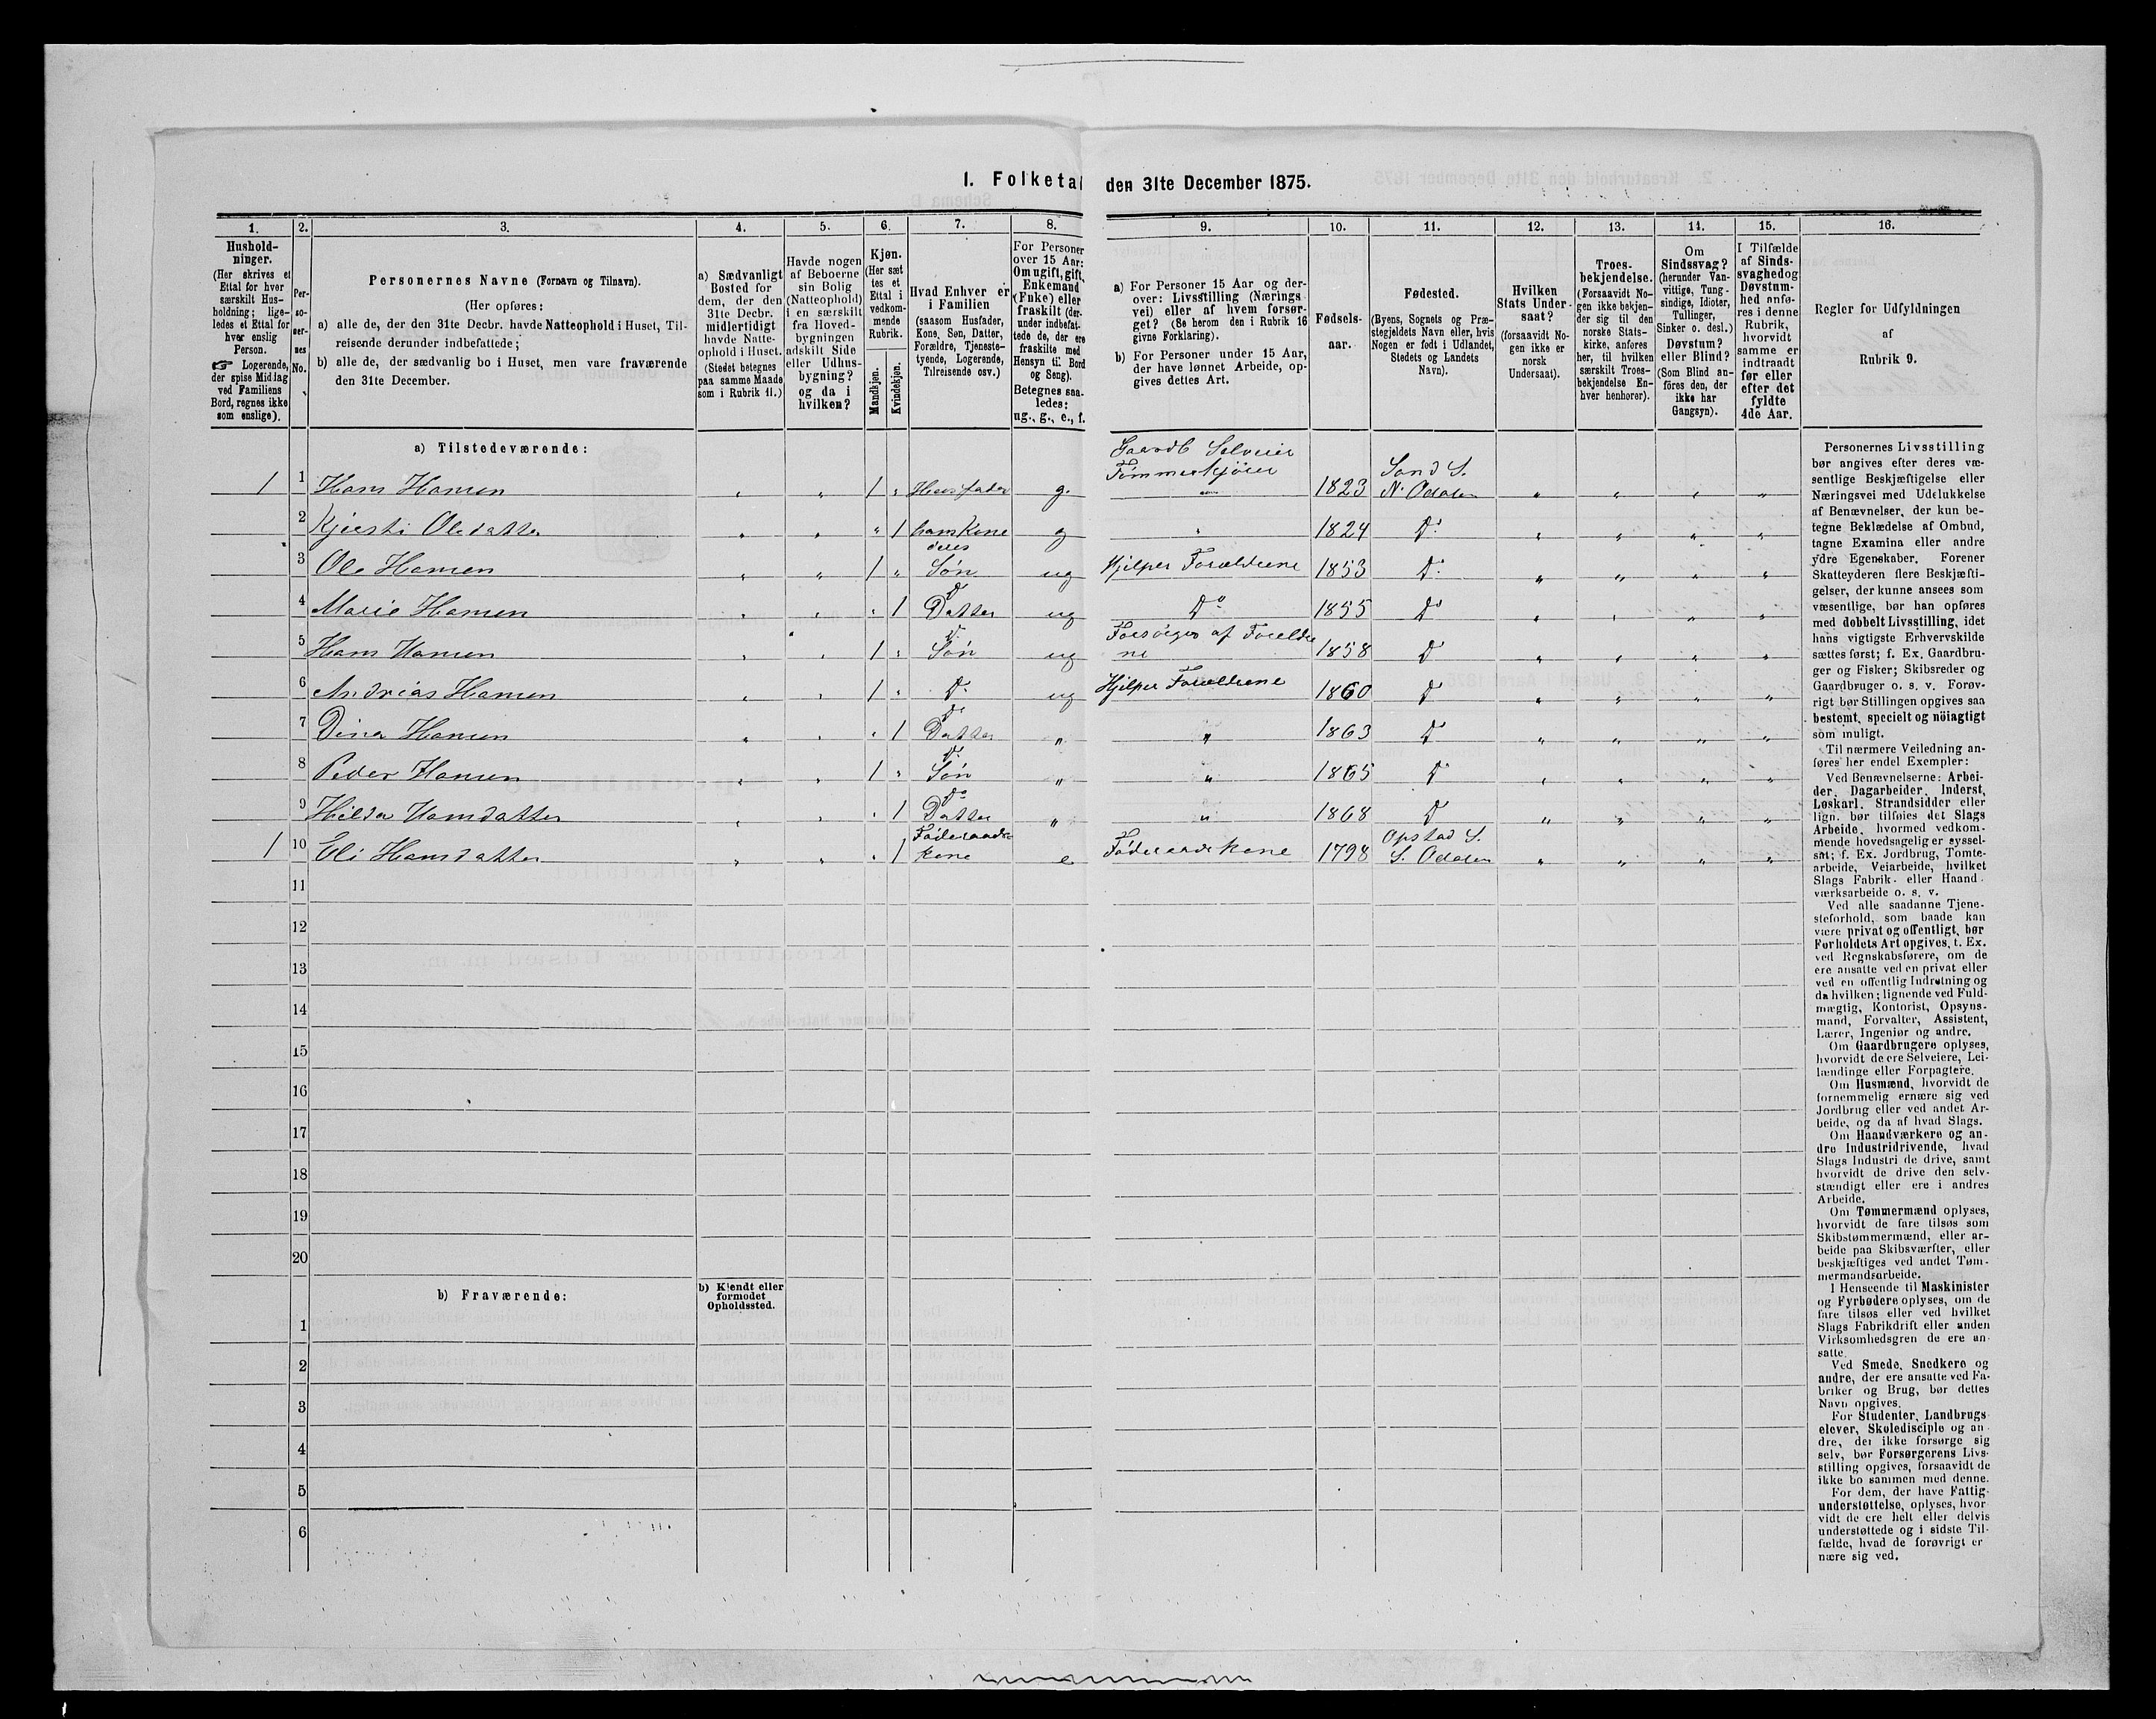 I. Folketal den 31te December 1875.
1. 2. 3. 4. 5. 6. 7. 8. 9. 10. 11. 12. 13. 14. 15. 16.
Hushold-
ninger.
(Her skrives et
Ettal for hver
særskilt Hus-
holdning; lige-
ledes et Ettal for
hver enslig
Person.
☞ Logerende,
der spise Middag
ved Familiens
Bord, regnes ikke
som enslige).
Per-
so-
ner-
nes
No.
Personernes Navne (Fornavn og Tilnavn).
(Her opføres:
a) alle de, der den 31te Decbr. havde Natteophold i Huset, Til-
reisende derunder indbefattede;
b) alle de, der sædvanlig bo i Huset, men vare fraværende
den 31te December.
a) Sædvanligt
Bosted for
dem, der den
31te Decbr.
midlertidigt
havde Natte-
ophold i Huset.
(Stedet betegnes
paa samme Maade
som i Rubrik 11.)
Havde nogen
af Beboerne
sin Bolig
(Natteophold)
i en særskilt
fra Hoved-
bygningen
adskilt Side
eller Udhus-
bygning?
og da i
hvilken?
Kjøn.
(Her sæt
tes et
Ettal i
vedkom-
mende
Rubrik.
Mandkjøn.
Kvindekjøn.
Hvad Enhver er
i Familien
(saasom Husfader,
Kone, Søn, Datter,
Forældre, Tjeneste-
tyende, Logerende,
Tilreisende osv.)
For Personer
over 15 Aar:
Om ugift, gift,
Enkemand
(Enke) eller
fraskilt (der-
under indbefat-
tede de, der ere
fraskilte med
Hensyn til Bord
og Seng).
Betegnes saa-
ledes:
ug., g., e., f.
a) For Personer 15 Aar og der-
over: Livsstilling (Nærings
vei) eller af hvem forsør-
get? (Se herom den i Rubrik 16
givne Forklaring).
b) For Personer under 15 Aar,
der have lønnet Arbeide, op-
gives dettes Art.
Fødsels-
aar.
Fødested.
(Byens, Sognets og Præ-
stegjeldets Navn eller, hvis
Nogen er født i Udlandet,
Stedets og Landets
Navn).
Hvilken
Stats Under-
saat?
(forsaavidt No-
gen ikke er
norsk
Undersaat).
Troes-
bekjendelse.
(Forsaavidt No-
gen ikke bekjen-
der sig til den
norske Stats-
kirke, anføres
her, til hvilken
særskilt Troes-
bekjendelse En-
hver henhører).
Om
Sindssvag?
(herunder Van-
vittige, Tung-
sindige, Idioter,
Tullinger,
Sinker o. desl.)
Døvstum?
eller Blind?
(Som Blind an-
føres den, der
ikke har
Gangsyn).
I Tilfælde
af Sinds-
svaghed og
Døvstum-
hed anfø-
res i denne
Rubrik,
hvorvidt
samme er
indtraadt
før eller
efter det
fyldte
4de Aar.
Regler for Udfyldningen
af
Rubrik 9.
a) Tilstedeværende:
Gaardb Selveier
Tømmerkjører
1 1 Hans Hansen " " 1 " Husfader g. 1823 Sand S. N. Odalen " " " "
2 Kjersti Olsdatter " " " 1 hans Kone g " 1824 Do " " " "
3 Ole Hansen " " 1 " deres Søn ug Hjelper Forældrene 1853 Do " " " "
4 Marie Hansen " " " 1 Do Datter ug Do 1855 Do " " " "
5 Hans Hansen " " 1 " Do Søn ug Forsørges af Foreldrene 1858 D " " " "
6 Andreas Hansen " " 1 " Do ug Hjelper Foreldrene 1860 D " " " "
7 Dina Hansen " " " 1 Do Datter " " 1863 D " " " "
8 Peder Hansen " " 1 " Do Søn " " 1865 D " " " "
9 Hilda Hansdatter " " " 1 Do Datter " " 1868 D " " " "
1 10 Eli Hansdatter " " " 1 Føderaads-Kone e Føderaads Kone 1798 Opstad S. S. Odalen " " " "
11
12
13
14
15
16
17
18
19
20
b) Fraværende:
b) Kjendt eller
formodet
Opholdssted.
1
2
3
4
5
6
Personernes Livsstilling
bør angives efter deres væ-
sentlige Beskjæftigelse eller
Næringsvei med Udelukkelse
af Benævnelser, der kun be-
tegne Beklædelse af Ombud,
tagne Examina eller andre
ydre Egenskaber. Forener
Skatteyderen flere Beskjæfti-
gelser, der kunne ansees som
væsentlige, bør han opføres
med dobbelt Livsstilling, idet
hans vigtigste Erhvervskilde
sættes først; f. Ex. Gaardbru-
ger og Fisker; Skibsreder og
Gaardbruger o. s. v. Forøv-
rigt bør Stillingen opgives saa
bestemt, specielt og nöiagtigt
som muligt.
Til nærmere Veiledning an-
føres her endel Exempler:
Ved Benævnelserne: Arbei-
der, Dagarbeider, Inderst,
Løskarl, Strandsidder eller
lign. bør tilføies det Slags
Arbeide, hvormed vedkom-
mende hovedsagelig er syssel-
sat; f. Ex. Jordbrug, Tomte-
arbeide, Veiarbeide, hvilket
Slags Fabrik- eller Haand-
værksarbeide o. s. v.
Ved alle saadanne Tjene-
steforhold, som baade kan
være privat og offentligt, bør
Forholdets Art opgives, t. Ex.
ved Regnskabsførere, om de
ere ansatte ved en privat eller
ved en offentlig Indretning og
da hvilken; lignende ved Fuld-
mægtig, Kontorist, Opsyns-
mand, Forvalter, Assistent,
Lærer, Ingeniør og andre.
Om Gaardbrugere oplyses,
hvorvidt de ere Selveiere, Lei-
lændinge eller Forpagtere.
Om Husmænd, hvorvidt de
fornemmelig ernære sig ved
Jordbrug eller ved andet Ar-
beide, og da af hvad Slags.
Om Haandværkere og an-
dre Industridrivende, hvad
Slags Industri de drive, samt
hvorvidt de drive den selv-
stændigt eller ere i andres
Arbeide.
Om Tømmermænd oplyses,
hvorvidt de fare tilsøs som
Skibstømmermænd, eller ar-
beide paa Skibsværfter, eller
beskjæftiges ved andet Tøm-
mermandsarbeide.
I Henseende til Maskinister
og Fyrbødere oplyses, om de
fare tilsøs eller ved hvilket
Slags Fabrikdrift eller anden
Virksomhedsgren de ere an-
satte.
Ved Smede, Snedkere og
andre, der ere ansatte ved Fa-
briker og Brug, bør dettes
Navn opgives.
For Studenter, Landbrugs
elever, Skoledisciple og an-
dre, der ikke forsørge sig
selv, bør Forsørgerens Livs-
stilling opgives, forsaavidt de
ikke bo sammen med denne.
For dem, der have Fattig-
understøttelse, oplyses, hvor
vidt de ere helt eller delvis
understøttede og i sidste Til-
fælde, hvad de forøvrigt er
nære sig ved.